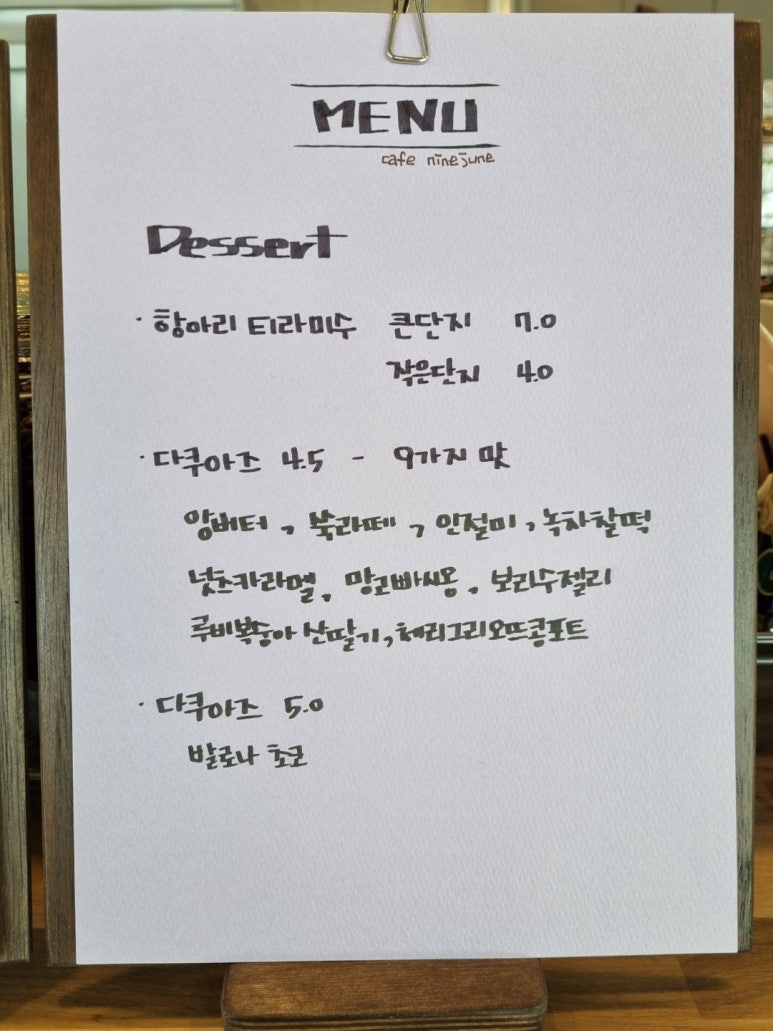 MENU
cafe ninejune
Dessert
· 항아리 티라미수 큰단지 7.0
작은단지 4.0
· 다쿠아즈 4.5 - 9가지 맛
앙버터, 쑥라떼, 인절미, 녹차찰떡
넛츠카라멜, 망고빠시옹, 보리수젤리
루비복숭아 산딸기, 체리그리오뜨콩포트
· 다쿠아즈 5.0
발로나 초코